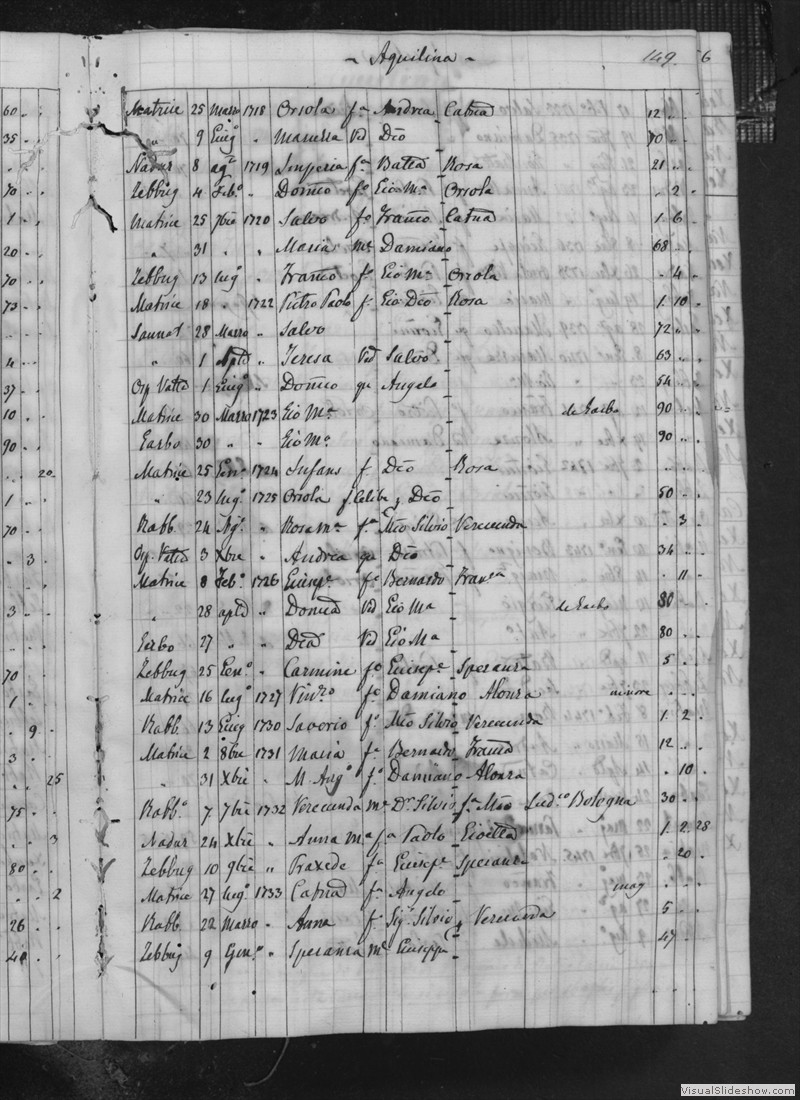 ~ Aquilina ~ 149. 6
60 .. Matrice 25 Marzo 1718 Orsola fa Andrea Catna 12 ..
35 .. " 9 Giugo " Maruzza Vd Dco 70 ..
.. Nadur 8 agto 1719 Imperia fa Battta Rosa 21 ..
70 .. Zebbug 4 Febo " Domco fo Gio Ma Orsola . 2 .
1 .. Matrice 25 7bre 1720 Salvo fo Franco Catna 1 6 .
20 .. " 31 " " Maria me Damiano 68 ..
70 .. Zebbug 13 lugo " Franco fo Gio Ma Orsola . 4 .
73 .. Matrice 18 " 1722 Pietro Paolo f. Gio Dco Rosa 1 10 .
28 Marzo " Salvo 72 ..
4 .. " 1 Aple " Teresa Vd Salvo 63 ..
37 .. 1 Giugo " Domco qu Angelo 54 ..
10 .. Matrice 30 Marzo 1723 Gio Ma de Garbo 90 ..
90 .. Garbo 30 " " Gio Ma 90 ..
.. 20 Matrice 25 Genro 1724 Infans f. Dco Rosa
1 .. " 23 lugo 1725 Orsola Dco 50 ..
70 .. Rabb. 24 " Rosa Ma fa Mro Silvio Verecunda . 3 .
. 3 . 3 Xbre " Andrea qu Dco 34 ..
Matrice 8 Febo 1726 Giuspe fo Bernardo Franca . 11 .
3 .. " 28 aple " Domca Vd Gio Ma de Garbo 80
Garbo 27 " " Dca Vd Gio Ma 80 ..
70 Zebbug 25 Geno " Carmine fo Giuspe Speranza 5 ..
1 .. Matrice 16 lugo 1727 Vinzo fo Damiano Alonza minore
. 9 . Rabb. 13 Giug 1730 Saverio fo Mro Silvio Verecunda 1 2 .
3 .. Matrice 2 8bre 1731 Maria fa Bernardo Franca 12 ..
.. 25 " 31 Xbre " M. Anga fa Damiano Alonza . 10 .
75 .. Rabb.o 7 7bre 1732 Verecunda me Dr Silvio fa Mro Ludco Bologna 30 ..
.. 3 Nadur 24 Xbre " Anna Ma fa Paolo 1 2 28
80 .. Zebbug 10 9bre " Praxede fa Giuspe Speranza . 20 .
.. 2 Matrice 27 lugo 1733 Catna fa Angelo mag
26 .. Rabb. 22 Marzo " Anna fa Sigr Silvio e Verecunda 5 ..
40 .. Zebbug 9 Gen.o " Speranza me Giuseppe 47 ..
VisualSlideshow.com